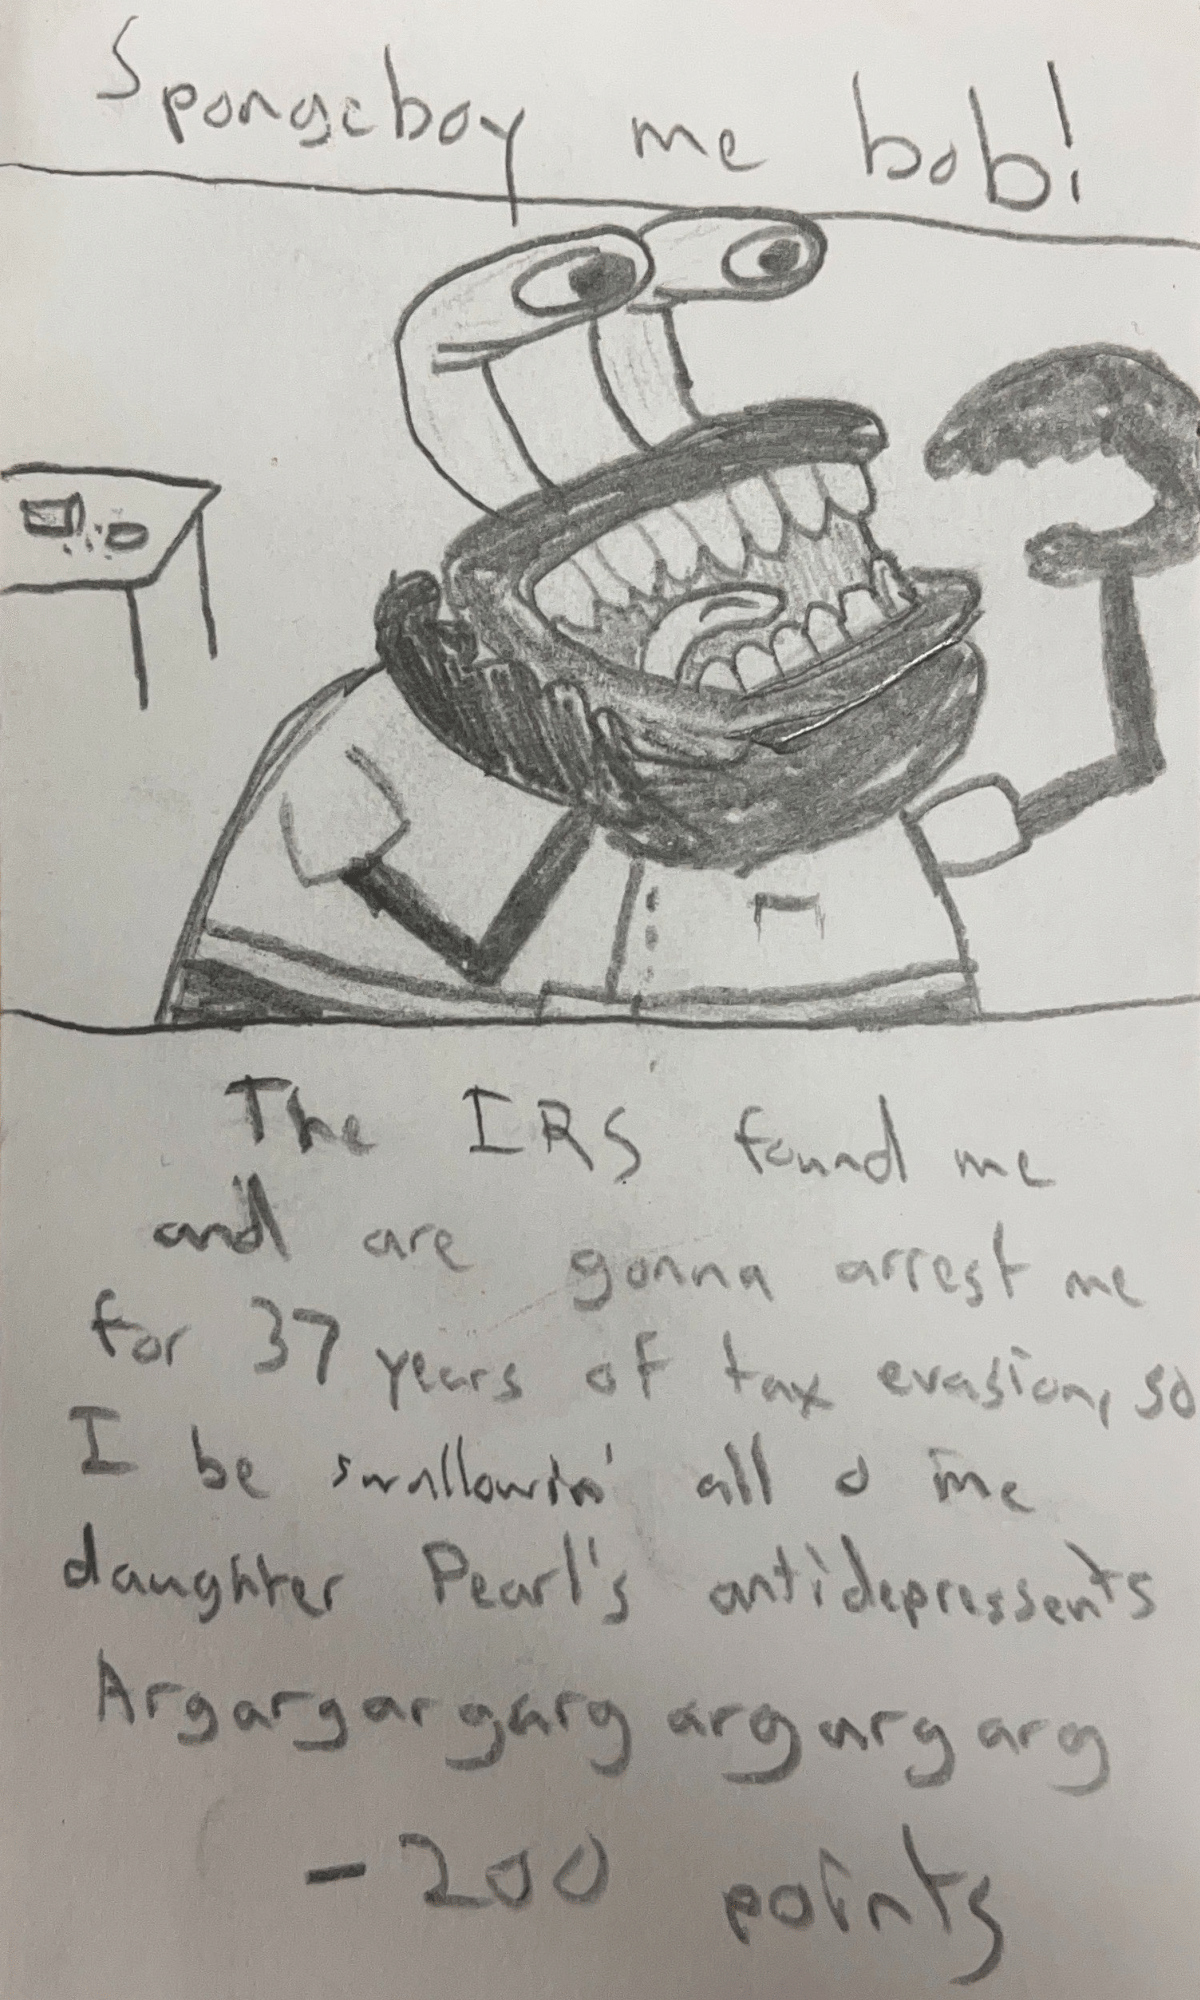 Spongeboy me bob!
The IRS found me
and are gonna arrest me
for 37 years of tax evasion, so
I be swallowin' all o me
daughter Pearl's antidepressents
Argargargarg argargarg
-200 points